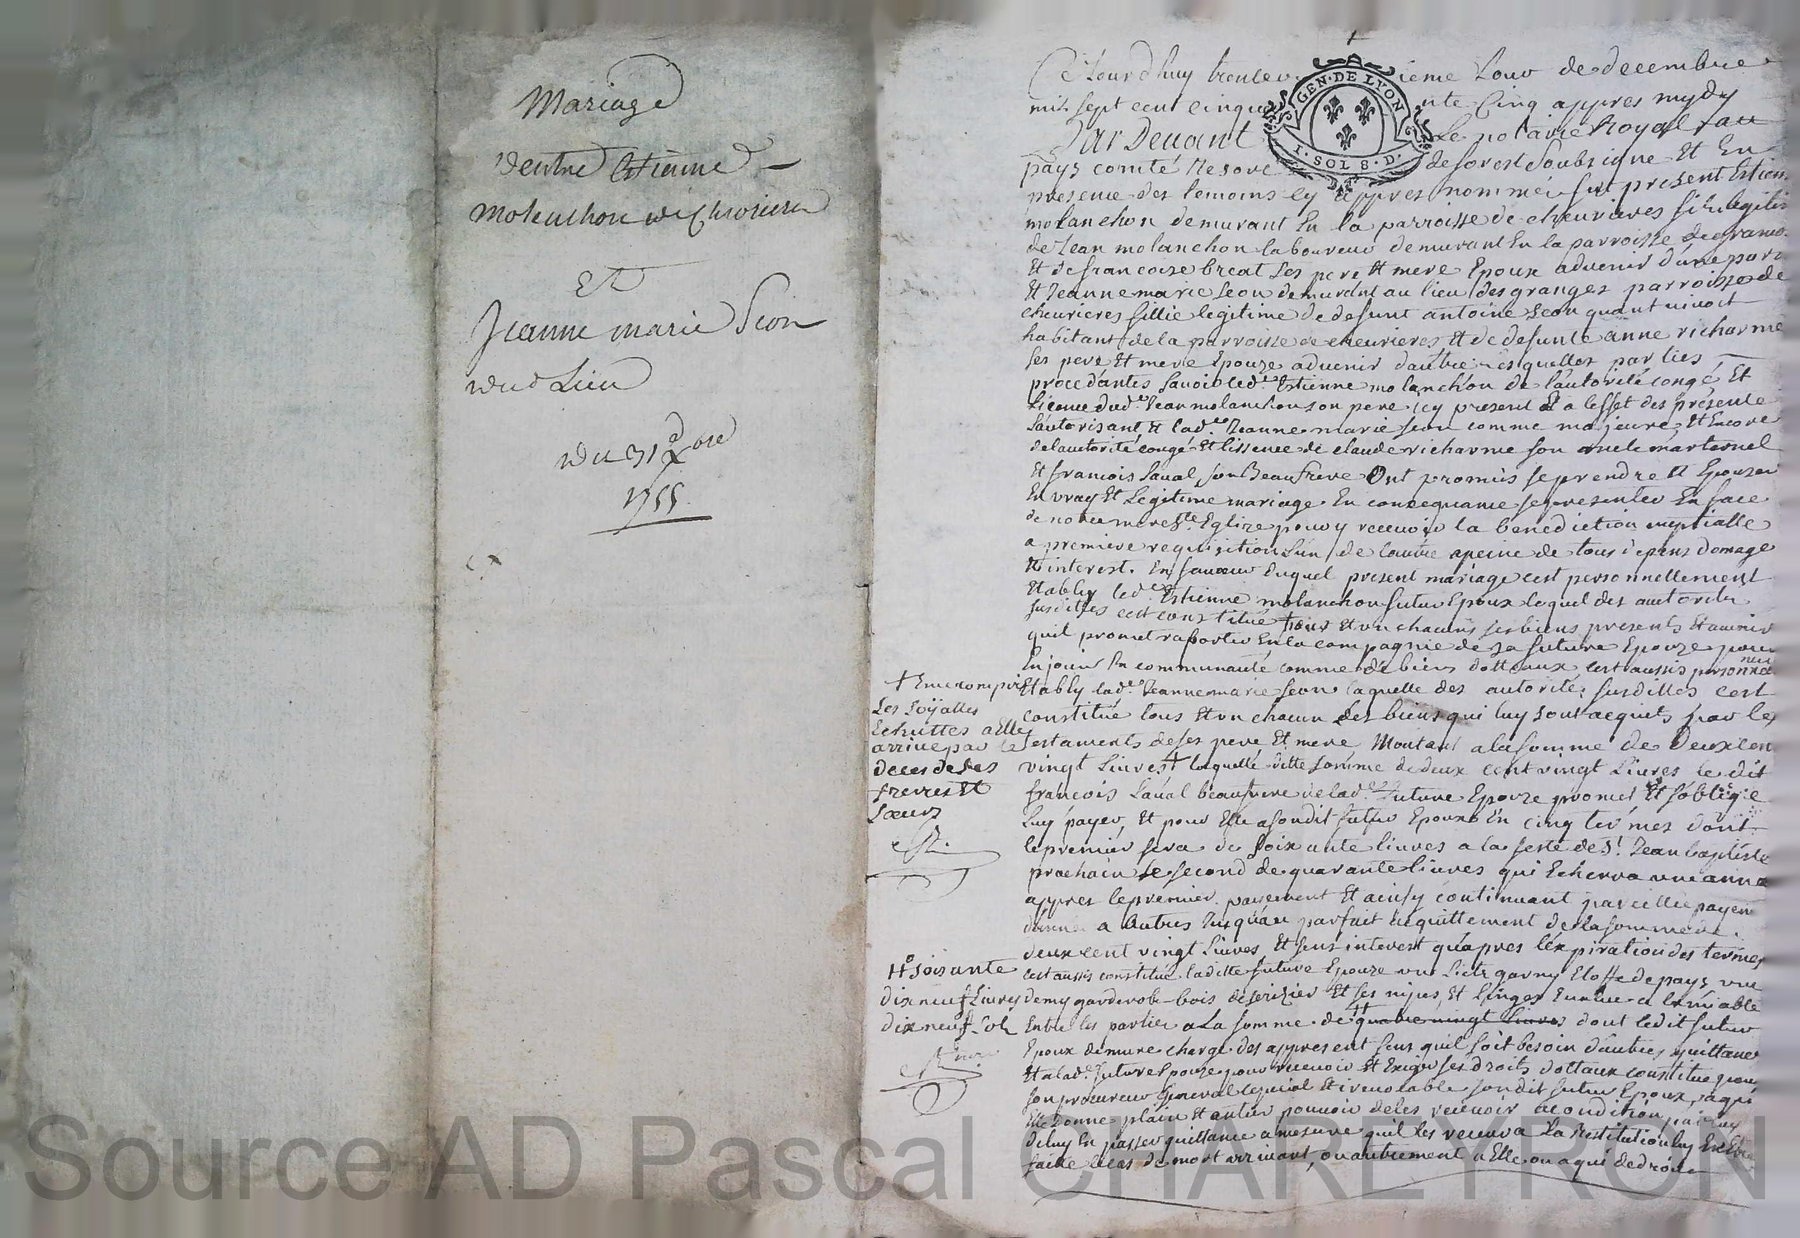 Mariage
d'entre Etienne
molenchon de Chevrieres
Et
Jeanne marie Seon
dud Lieu
du 31 Xbre
1755
Ce Jourd'huy trente ieme Jour de decembre
mil sept cent cinqu nte Cinq appres mydy
Par Devant Le notaire Royal au
pays comté de forest Soubsigne Et En
presence des temoins cy appres nommé fut present Estienne
molanchon demurant En la parroisse de cheurieres fils legitime
de Jean molanchon laboureur demurant En la parroisse de
Et de francoise breat ses pere Et mere Epoux aduenir d'une part
Et Jeanne marie Seon demurant au lieu des granges parroisse de
cheurieres fillie legitime de defunt antoine Seon quant uiuoit
habitant de la parroisse de cheurieres Et de defunte anne richarme
ses pere Et mere Epouze aduenir d'autre lesquelles parties
procedantes sauoir led. Estienne molanchon de l'autorité congé Et
licence dud. Jean molanchon son pere icy present Et a leffet des presente
l'autorisant Et lad. Jeanne marie Seon comme majeure Et Encore
de lautorité congé Et lissence de claude richarme son oncle marternel
Et francois Laual son Beau frere Ont promis se prendre Et Epouzer
En uray Et Legitime mariage En consequance se presenter En face
de notre mere Ste Eglize pour y receuoir la benediction nuptialle
a premiere requisition l'un de lautre a peine de tous depens domage
Et interest. En faueur duquel present mariage cest personnellement
Etably led. Estienne molanchon futur Epoux lequel des autorites
susdittes cest constitué tous Et un chacuns ses biens presents Et auenir
quil promet raporter En la compagnie de sa future Epouze pour
En jouir En communauté comme de biens dottaux cest aussis personnellement
Etably lad. Jeanne marie Seon laquelle des autorites susdittes cest
constitué tous Et un chacun des biens qui luy sont acquits par les
testaments de ses pere Et mere Montant a la somme de deux cent
vingt Liures + laquelle ditte somme de deux cent vingt Liures le dit
francois Laual beaufrere de lad. future Epouze promet Et s'oblige
luy payer, Et pour Elle a son dit futur Epoux En cinq termes dont
le premier sera de soixante liures a la feste de St Jean baptiste
prochain le second de quarante liures qui Echerra une anné
appres le premier payement Et ainsy continuant pareille payem
d'année a autres Jusquau parfait acquittement de la somme de
deux cent vingt Liures Et sens interest quapres lexpiration des termes
cest aussis constitué laditte future Epouze un Lict garny Etoffe de pays une
demy garderobe bois de serizier Et ses nipes, Et linges Eualue a lamiable
Entre les parties a La somme de # quatre uingt liures dont ledit futur
Epoux demure chargé des appresent sens quil soit besoin d'autres quittance
Et a lad. future Epouze pour receuoir Et Exiger ses droits dottaux constitue pour
son procureur General special Et irreuocable son dit futur Epoux, a qui
Elle donne plain Et entier pouuoir de les receuoir a condition par luy
de luy En passer quittance a mesure quil les receura La Restitution luy En Etre
faitte le cas de mort arriuant, ou autrement a Elle ou a qui de droit
+ Ences compris
Les Loyalles
Echuttes a Elle
arriue par le
deces de ses
freres Et
Sœurs
# soixante
dix neuf Liures
dix neuf Sols
GEN·DE LYON
I·SOL 8·D
Source AD Pascal CHARETRON